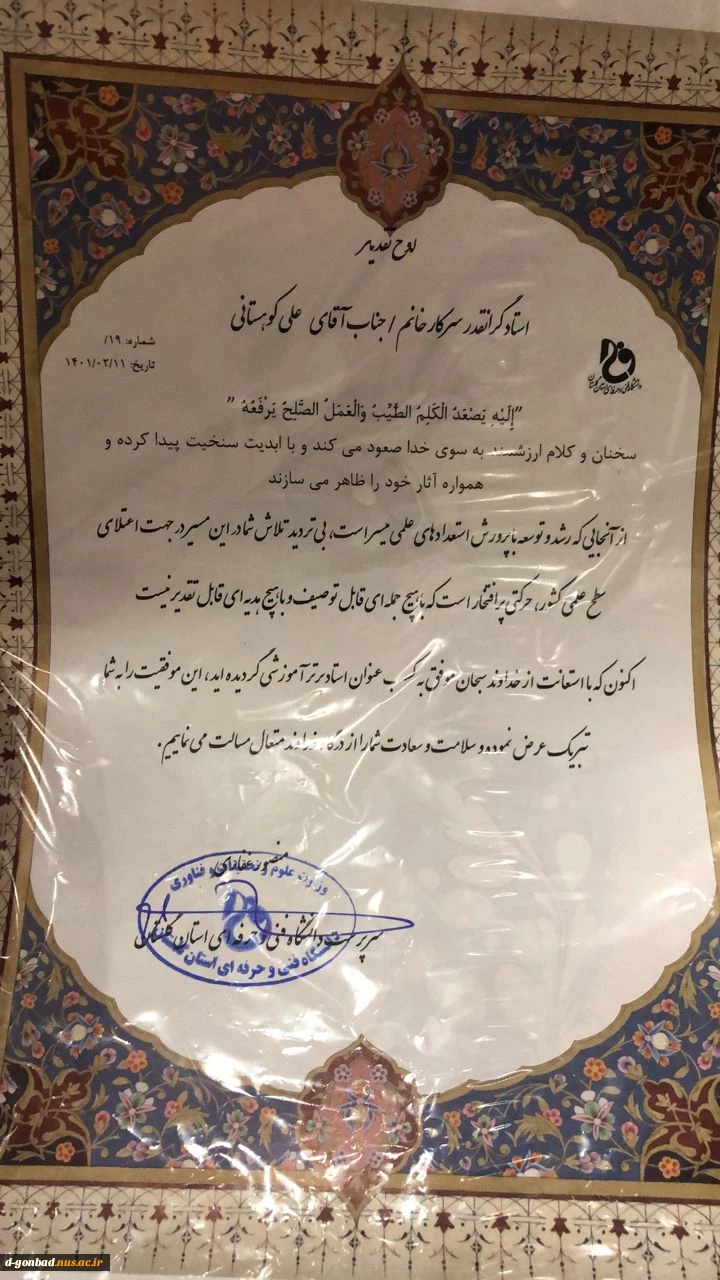 لوح تقدیر
استاد گرانقدر سرکار خانم / جناب آقای علی کوهستانی
شماره: ۱۹/
تاریخ: ۱۴۰۱/۰۲/۱۱
دانشگاه فنی و حرفه ای استان گلستان
"إِلَيْهِ يَصْعَدُ الْكَلِمُ الطَّيِّبُ وَالْعَمَلُ الصَّلِحُ يَرْفَعُهُ"
سخنان و کلام ارزشمند به سوی خدا صعود می کند و با ابدیت سنخیت پیدا کرده و
همواره آثار خود را ظاهر می سازند
از آنجایی که رشد و توسعه با پرورش استعدادهای علمی میسر است، بی تردید تلاش شما در این مسیر در جهت اعتلای
سطح علمی کشور، حرکتی پر افتخار است که با هیچ جمله ای قابل توصیف و با هیچ هدیه ای قابل تقدیر نیست
اکنون که با استعانت از خداوند سبحان موفق به کسب عنوان استاد برتر آموزشی گردیده اید، این موفقیت را به شما
تبریک عرض نموده و سلامت و سعادت شما را از درگاه خداوند متعال مسالت می نماییم.
منصور غفاری
وزارت علوم و تحقیقات و فناوری
سرپرست دانشگاه فنی و حرفه ای استان گلستان
دانشگاه فنی و حرفه ای استان
d-gonbad.nus.ac.ir